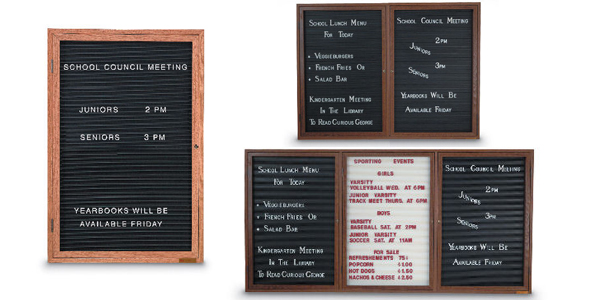 SCHOOL COUNCIL MEETING
JUNIORS 2 PM
SENIORS 3 PM
YEARBOOKS WILL BE
AVAILABLE FRIDAY
SCHOOL LUNCH MENU
FOR TODAY
• VEGGIEBURGERS
• FRENCH FRIES OR
• SALAD BAR
KINDERGARTEN MEETING
IN THE LIBRARY
TO READ CURIOUS GEORGE
SCHOOL COUNCIL MEETING
2PM
JUNIORS
3PM
SENIORS
YEARBOOKS WILL BE
AVAILABLE FRIDAY
SCHOOL LUNCH MENU
FOR TODAY
• VEGGIEBURGERS
• FRENCH FRIES OR
• SALAD BAR
KINDERGARTEN MEETING
IN THE LIBRARY
TO READ CURIOUS GEORGE
SPORTING EVENTS
GIRLS
VARSITY
VOLLEYBALL WED. AT 6PM
JUNIOR VARSITY
TRACK MEET THURS. AT 6PM
BOYS
VARSITY
BASEBALL SAT. AT 2PM
JUNIOR VARSITY
SOCCER SAT. AT 11AM
FOR SALE
REFRESHEMENTS 75¢
POPCORN $1.00
HOT DOGS $1.50
NACHOS & CHEESE $2.50
SCHOOL COUNCIL MEETING
2PM
JUNIORS
3PM
SENIORS
YEARBOOKS WILL BE
AVAILABLE FRIDAY